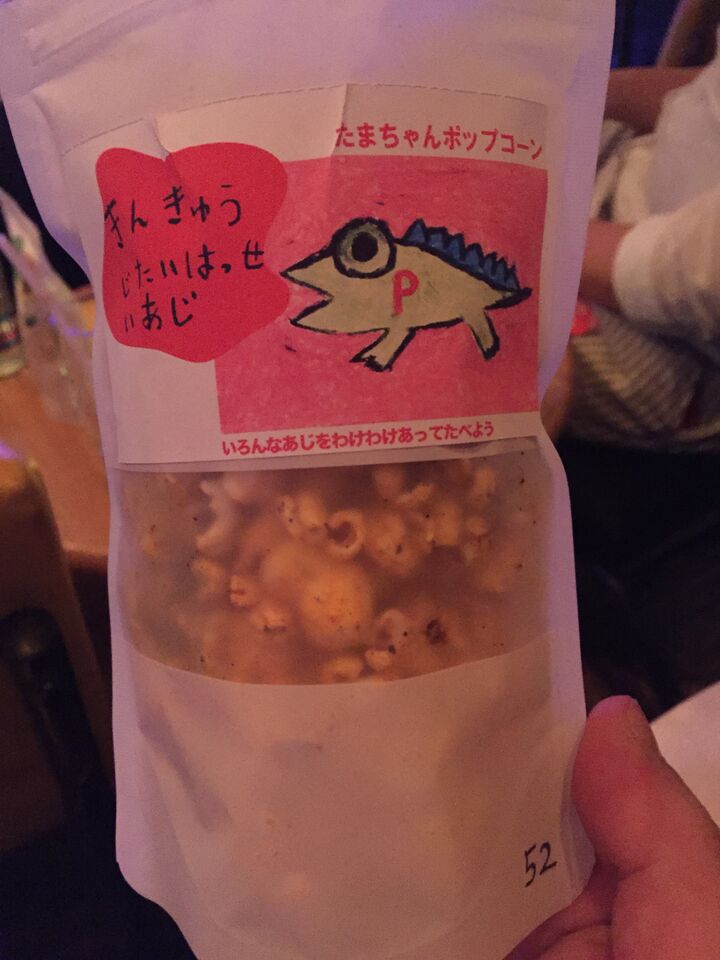 たまちゃんポップコーン
きんきゅう
じたいはっせ
いあじ
P
いろんなあじをわけわけあってたべよう
52